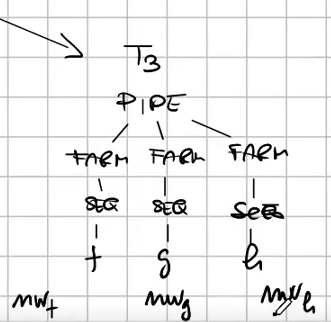 T3
PIPE
FARM FARM FARM
SEQ SEQ SEQ
f g h
nwf nwg nwh